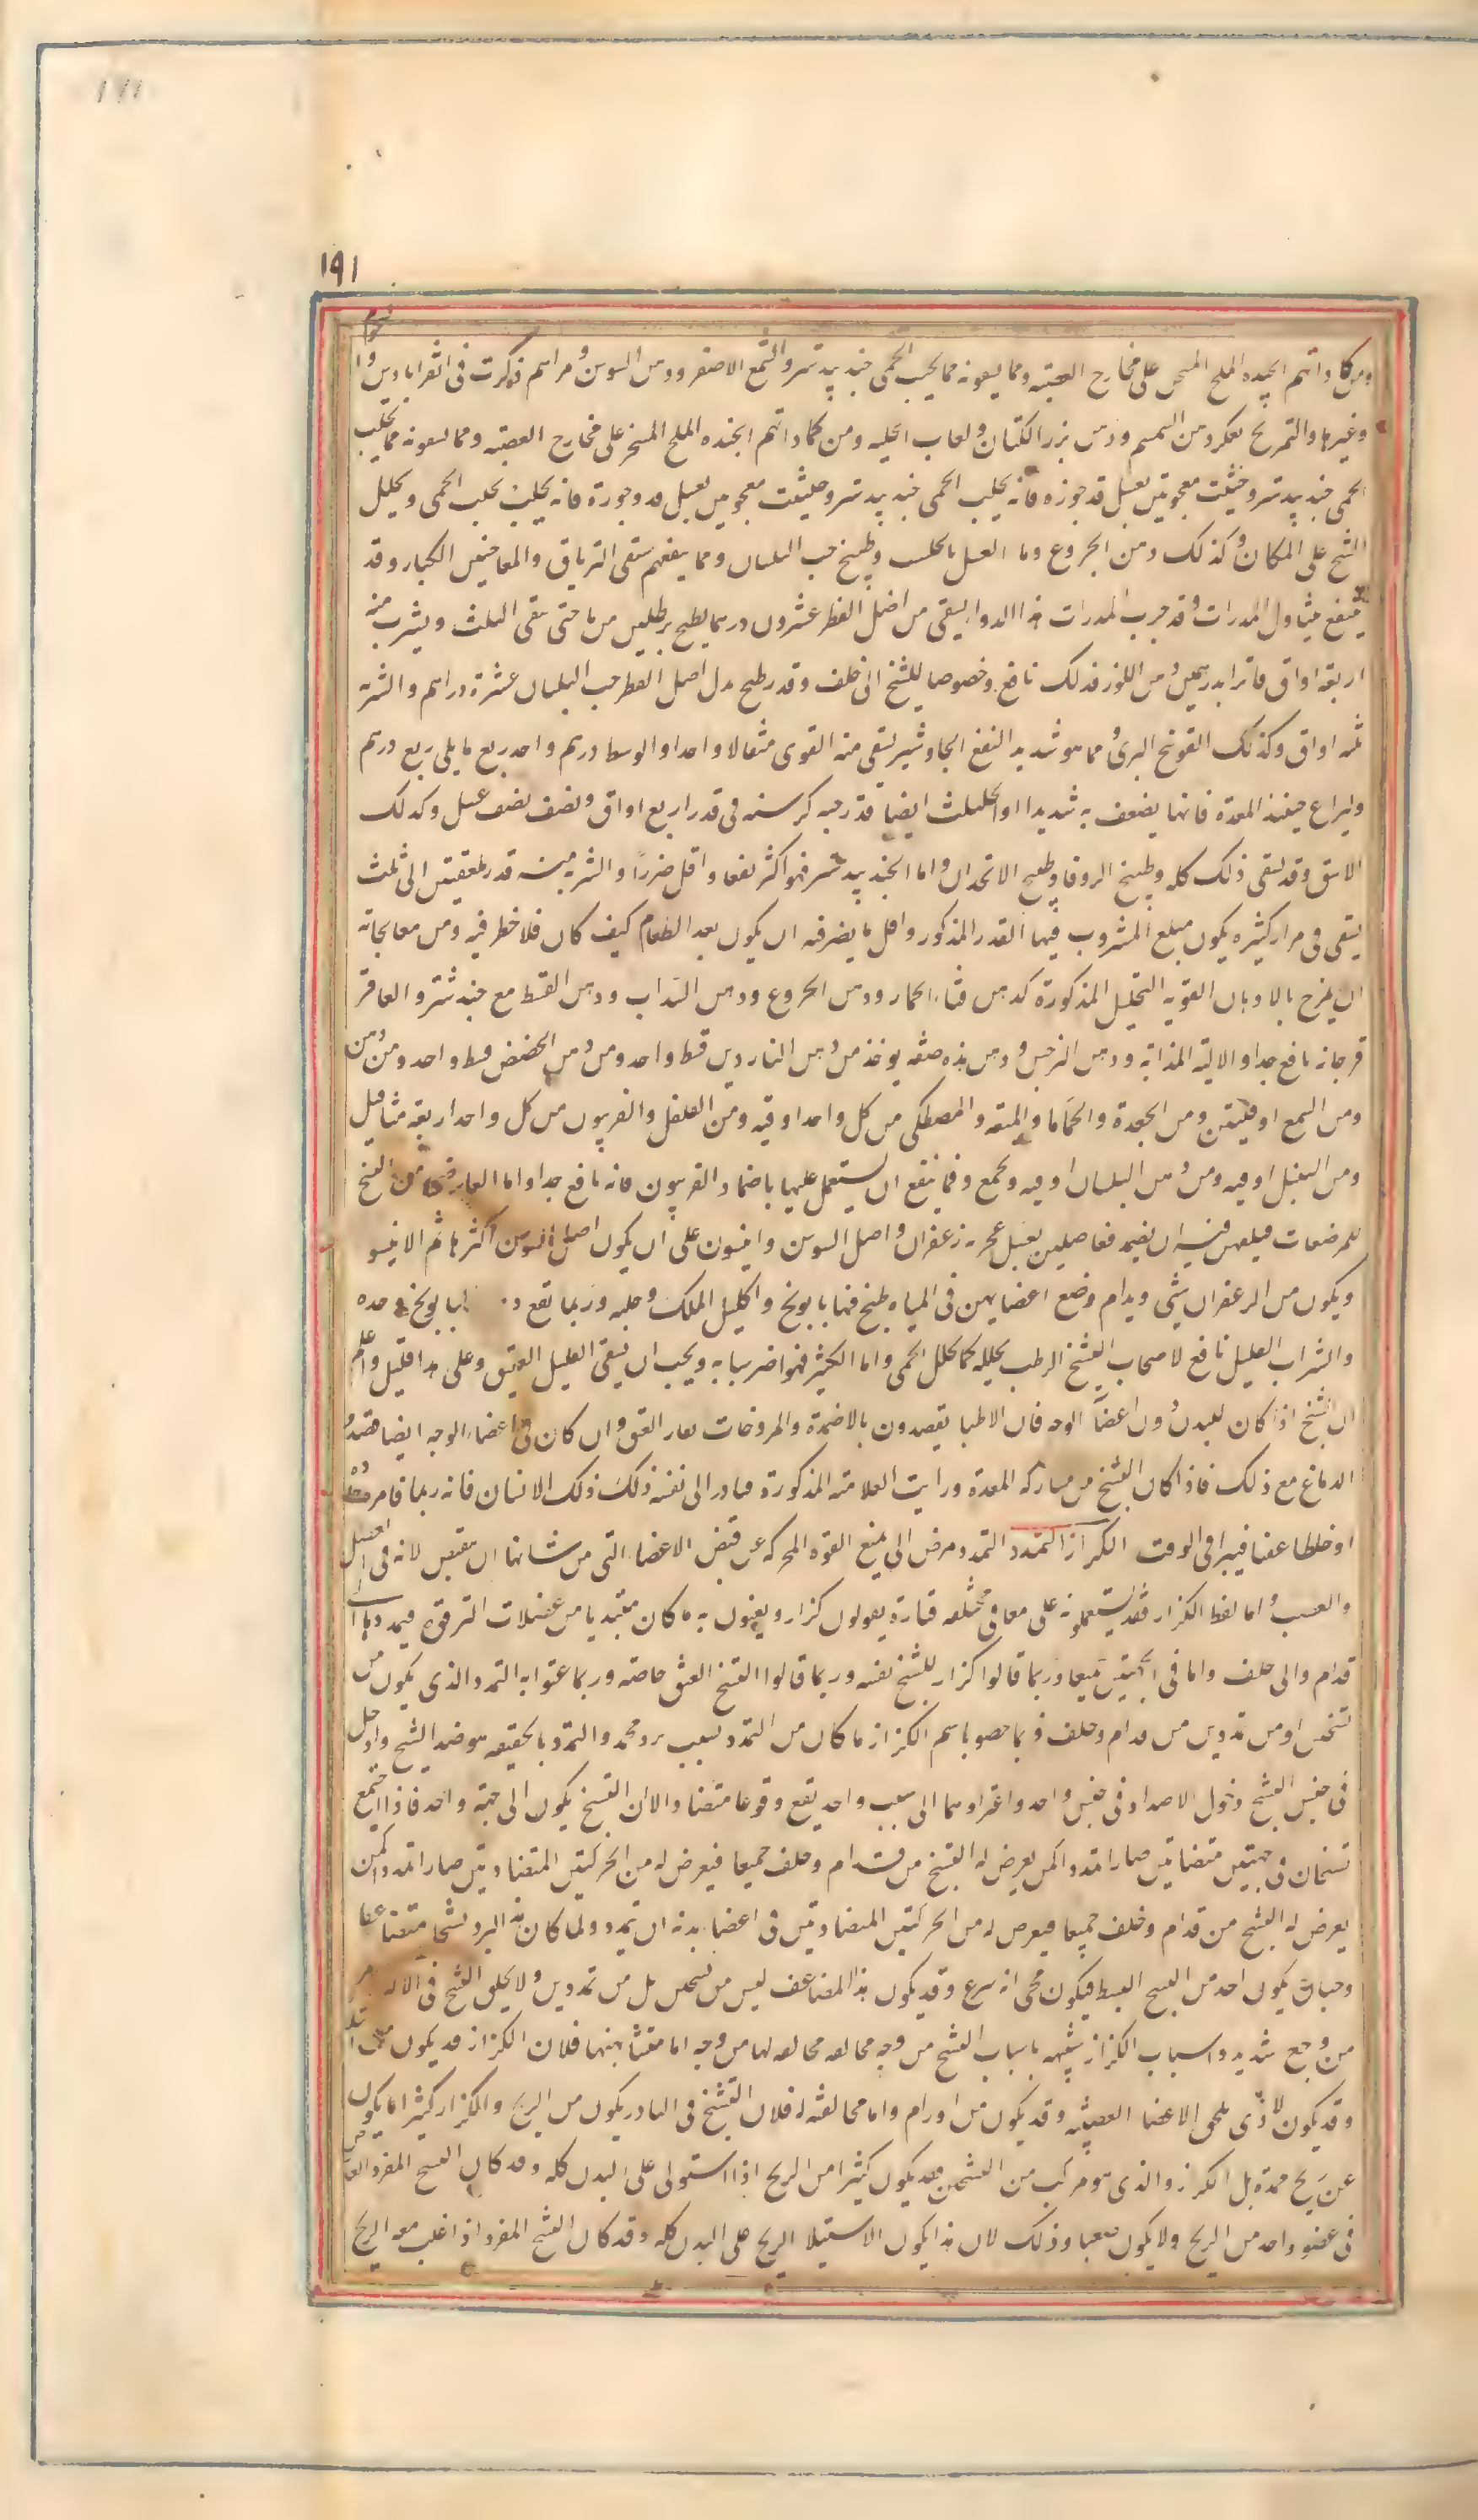 ١٩١
ومن كماداتهم الجيده الملح المسخن على مخارج العصبه ومما يسقونه مما يجلب الحمى جندبيدستر والشمع الاصفر ودهن السوسن ومراهم ذكرت فى القرابادين
وغيرها والتمريخ بعكر دهن السمسم ودهن بزر الكتان ولعاب الحلبه ومن كماداتهم الجيده الملح المسخن على مخارج العصبه ومما يسقونه مما يجلب
الحمى جندبيدستر وحلتيت معجونين بعسل قدر جوزه فانه يجلب الحمى جندبيدستر وحلتيت معجونين بعسل قدر جوزة فانه يجلب الحمى ويحلل
التشنج على المكان وكذلك دهن الخروع وماء العسل بالحلتيت وطبيخ حب البلسان ومما ينفعهم سقى الترياق والمعاجين الكبار وقد
ينتفع بتناول المدرات وقد جرب المدرات هذا الدواء يسقى من اصل الفطر عشرون درهما يطبخ برطلين من ما حتى يبقى الثلث ويشرب منه
اربعة اواق فاترا بدرهمين دهن اللوز فذلك نافع وخصوصا للتشنج الى خلف وقد يطبخ بدل اصل الفطر حب البلسان عشرة دراهم والشربه
ثلثه اواق وكذلك الفوتنج البرى ومما هو شديد النفع الجاوشير يسقى منه القوى مثقالا واحدا والوسط درهم واحد ربع ما يلى ربع درهم
وليراع حينئذ المعدة فانها يضعف به شديدا او الحلتيت ايضا قدر حبه كرسنه فى قدر اربع اواق ونصف نصف عسل وكذلك
الاشق وقد يسقى ذلك كله وطبيخ الزوفا وطبيخ الانجدان واما الجندبيدستر فهو اكثر نفعا واقل ضررا والشربه منه قدر ملعقتين الى ثلث
يسقى فى مرار كثيره يكون مبلغ المشروب فيها القدر المذكور واقل ما يضر فيه ان يكون بعد الطعام كيف كان فلا خطر فيه ومن معالجاته
ان يمرخ بالادهان القويه التحليل المذكورة كدهن قثاء الحمار ودهن الخروع ودهن السداب ودهن القسط مع جندبستر والعاقر
قرحا فانه نافع جدا والاليه المذابه ودهن النرجس ودهن هذه صفته يوخذ من دهن الناردين قسط واحد ومن دهن الحضض قسط واحد ومن
ومن الشمع اوقيتين ومن الجعدة والحماما والميعه والمصطكى من كل واحد اوقيه ومن الفلفل والفربيون من كل واحد اربعة مثاقيل
ومن السنبل اوقيه ومن دهن البلسان اوقيه ويجمع ومما ينفع ان يستعمل عليها باضماد الفربيون فانه نافع جدا واما العارض من التشنج
للمرضعات فيكفيهن فيه ان يضمد مفاصلهن بعسل عجن به زعفران واصل السوسن وانيسون على ان يكون اصل السوسن اكثرها ثم الانيسو
ويكون من الزعفران شى ويدام وضع اعضايهن فى المياه طبخ فيها بابونج واكليل الملك وحلبه وربما نفع د. البابونج وحده
والشراب القليل نافع لاصحاب التشنج الرطب يحلله كما يحلل الحمى واما الكثير فهو اضر سبا به ويجب ان يسقى القليل العتيق وعلى هذا قليل واعلم
ان التشنج اذا كان للبدن دون اعضاء الوجه فان الاطبا يقصدون بالاضمدة والمروخات فقار العنق وان كان فى اعضاء الوجه ايضا قصدوا
الدماغ مع ذلك فاذا كان التشنج من مشاركه المعدة ورايت العلامة المذكورة فبادر الى نفسه ذلك ذلك الانسان فانه ربما قا مره
او خلطا عفنا فيبرا فى الوقت الكزاز التمدد التمدد مرض الى يمنع القوة المحركه عن قبض الاعضاء التى من شانها ان تقبض لانه فى العضل
والعصب واما لفظ الكزاز فقد يستعملونه على معانى مختلفه فتارة يقولون كزاز ويعنون به ما كان مبتديا من عضلات الترقوه فيمددها
قدام والى خلف واما فى الجهتين جميعا وربما قالوا كزاز للتشنج نفسه وربما قالوا التشنج العنق خاصه وربما عنوا به التمدد الذى يكون من
تشنجين او من تمددين من قدام وخلف وربما خصو باسم الكزاز ما كان من التمدد بسبب برد مجمد والتمدد بالحقيقه هو ضد التشنج وادخل
فى جنس التشنج دخول الاضداد فى جنس واحد واعتراوهما الى سبب واحد يقع وقوعا متضاد الا ان التشنج يكون الى جهة واحد فاذا اجتمع
تشنجان فى جهتين متضادتين صارا تمددا كمن يعرض له التشنج من قدام وخلف جميعا فيعرض له من الحركتين المتضادتين صارا تمددا كمن
يعرض له التشنج من قدام وخلف جميعا فيعرض له من الحركتين المتضادتين فى اعضا بدنه ان تمدد ولما كان هذا البرد تشنجا متضاعفا
وجب ان يكون احد من التشنج البسيط فيكون محى انه اسرع وقد يكون هذا المضاعف ليس من تشنجين بل من تمددين ولا يخلو التشنج فى الاكثر
من وجع شديد واسباب الكزاز شبيهه باسباب التشنج من وجه مخالفه مخالفه لها من وجه اما مشابهتها فلان الكزاز قد يكون
وقد يكون لاذى يلحق الاعضا العصبيه وقد يكون من اورام واما مخالفته له فلان التشنج فى النادر يكون من الريح والكزاز كثيرا ما يكون
عن ريح ممدة بل الكزاز والذى هو مركب من التشنجين فقد يكون كثيرا من الريح اذا استولى على البدن كله وقد كان التشنج المفرد
فى عضو واحد من الريح ولا يكون صعبا وذلك لان هذا يكون الاستيلا الريح على البدن كله وقد كان التشنج المفرد اذا غلب معه الريح